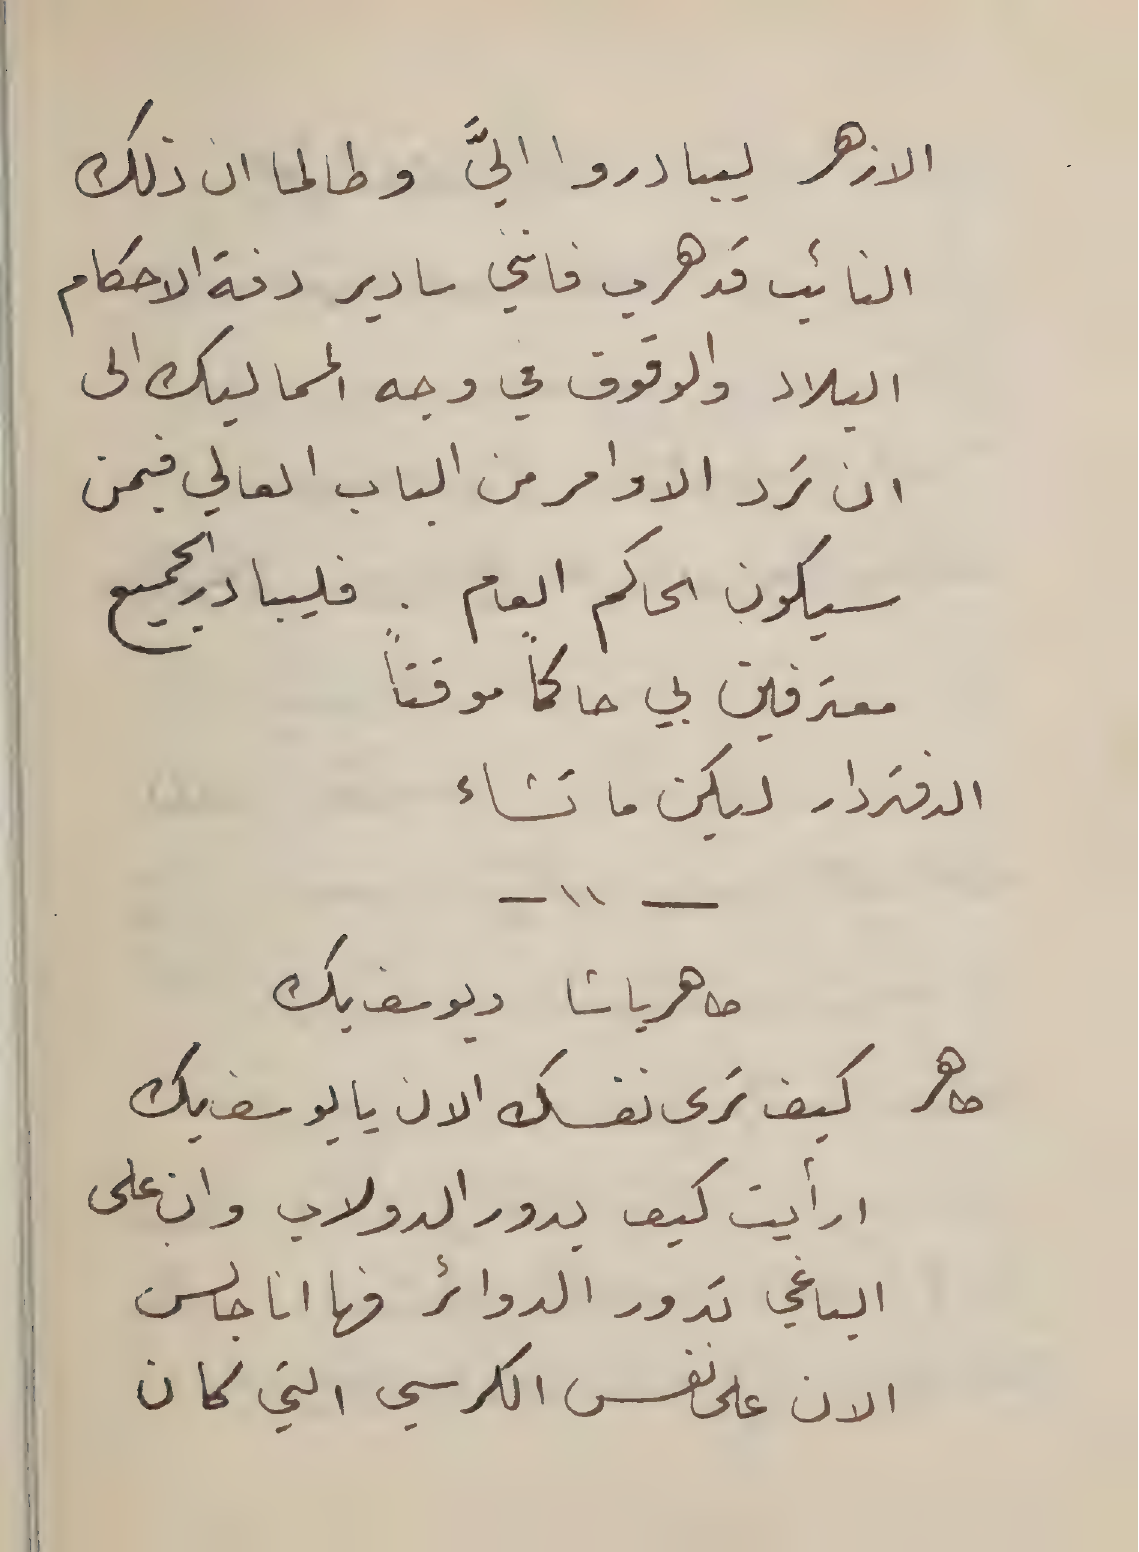 الازهر ليبادروا اليَّ وطالما ان ذلك
النائب قد هرب فانني سادير دفة الاحكام
البلاد والوقوف في وجه المماليك الى
ان ترد الاوامر من الباب العالي فيمن
سيكون الحاكم العام . فليبادر الجميع
معترفين بي حاكماً موقتاً
الدفتردار ليكن ما تشاء
— ١١ —
طاهر باشا ويوسف بك
طاهر كيف ترى نفسك الان يا يوسف بك
ارأيت كيف يدور الدولاب وان على
الباغي تدور الدوائر فها انا جالس
الان على نفس الكرسي التي كان